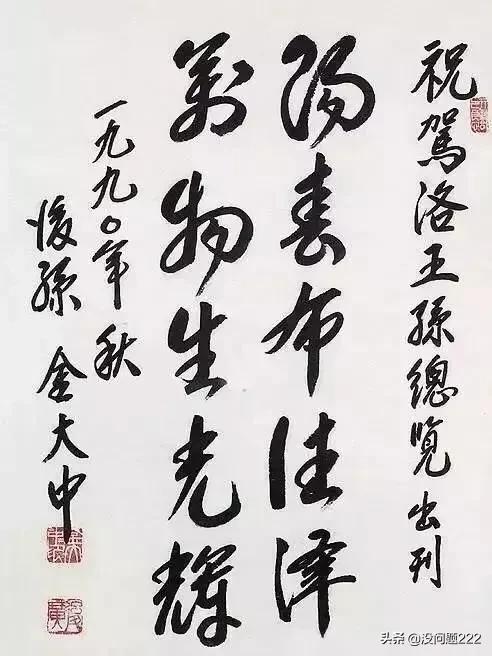 祝駕洛王孫總覽出刊
陽春布德澤
萬物生光輝
一九九〇年 秋
後孫 金大中
头条 @没问题222